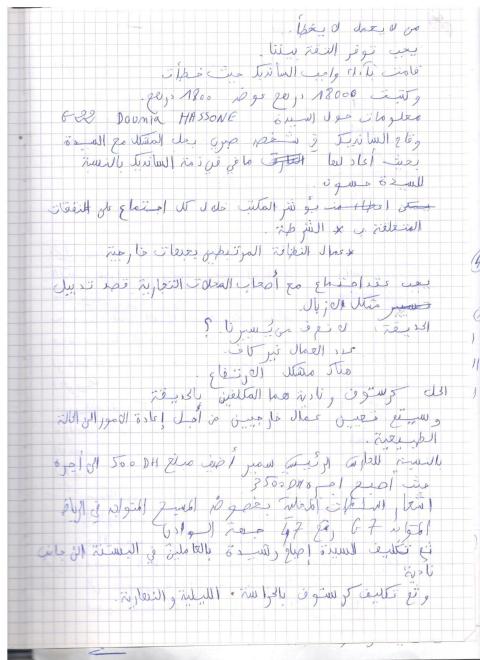 من لا يعمل لا يخطأ.
يجب توفر الثقة بيننا.
قامت بآداء واجب السانديك حيث خطأت
وكتبت 18000 درهم عوض 1800 درهم.
معلومات حول السيدة G-22 Dounia HASSONE
وقام السانديك في شخص صبري بحل المشكل مع السيدة
بحيث أعاد لها ما في ذمة السانديك بالنسبة
للسيدة حسون.
يؤشر المكتب خلال كل اجتماع على النفقات
المتعلقة ب * الشرطة.
* عمال النظافة المرتبطين بجهات خارجية
يجب عقد اجتماع مع أصحاب المحلات التجارية قصد تدبير
مشكل الازبال.
الحديقة: لا نعرف من يسيرنا.؟
عدد العمال غير كاف.
هناك مشكل الارتفاع.
الحل كرستوف ونادية هما المكلفين بالحديقة
وسيتم تعيين عمال خارجيين من أجل إعادة الامور الى الحالة
الطبيعية.
بالنسبة للحارس الرئيسي سمير أضف مبلغ 500 DH الى أجره
حيث اصبح اجره 3500DH
اشعار السلطات المحلية بخصوص المسبح المتواجد في الرياض
المتواجد G7 رقم 47 جهة الواد
تم تكليف السيدة إصلاح رشيدة بالعاملين في البستنة الى جانب
نادية
وتم تكليف كرستوف بالحراسة. الليلية والنهارية.